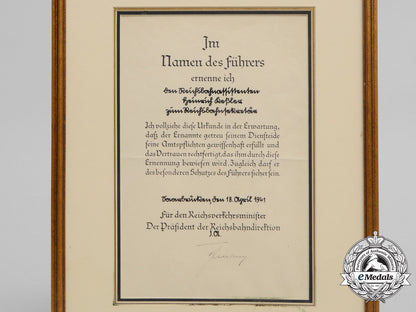 Im
Namen des Führers
ernenne ich
den Reichsbahnassistenten
Heinrich Keßler
zum Reichsbahnsekretär
Ich vollziehe diese Urkunde in der Erwartung,
daß der Ernannte getreu seinem Diensteide
seine Amtspflichten gewissenhaft erfüllt und
das Vertrauen rechtfertigt, das ihm durch diese
Ernennung bewiesen wird. Zugleich darf er
des besonderen Schutzes des Führers sicher sein.
Saarbrücken den 18. April 1941
Für den Reichsverkehrsminister
Der Präsident der Reichsbahndirektion
I.A.